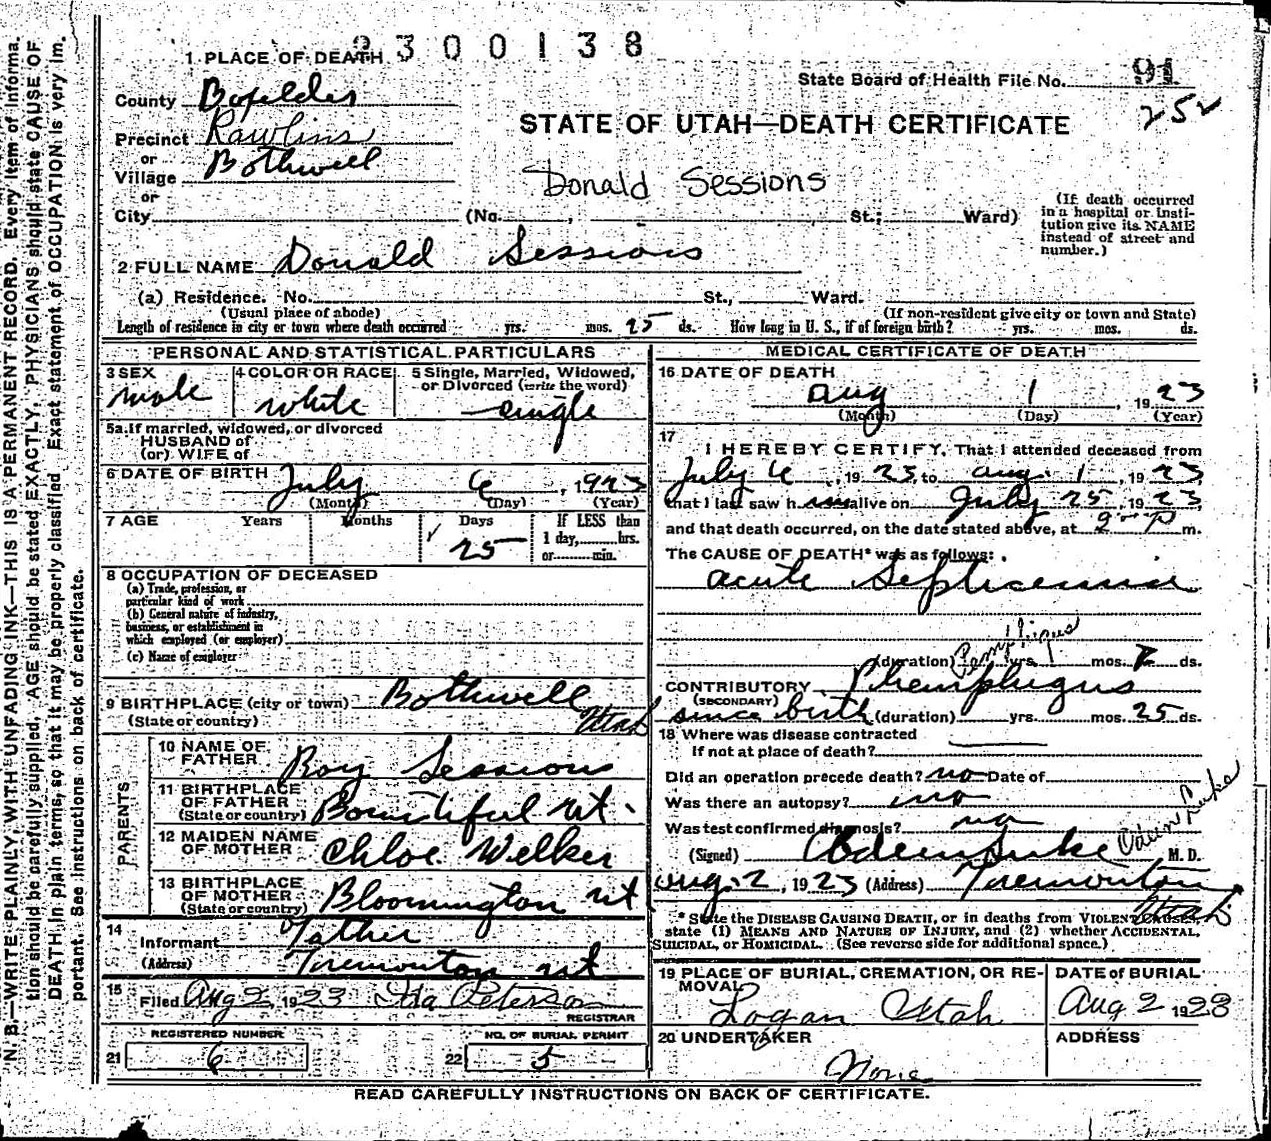 2300138
1 PLACE OF DEATH
State Board of Health File No. 91
252
County Boxelder
STATE OF UTAH—DEATH CERTIFICATE
Precinct Rawlins
or
Village Bothwell
Donald Sessions
or
City (No. , St.; Ward)
(If death occurred in a hospital or institution give its NAME instead of street and number.)
2 FULL NAME Donald Sessions
(a) Residence. No. St., Ward.
(Usual place of abode) (If non-resident give city or town and State)
Length of residence in city or town where death occurred yrs. mos. 25 ds. How long in U. S., if of foreign birth? yrs. mos. ds.
PERSONAL AND STATISTICAL PARTICULARS
3 SEX 4 COLOR OR RACE 5 Single, Married, Widowed, or Divorced (write the word)
male white single
5a If married, widowed, or divorced
HUSBAND of
(or) WIFE of
6 DATE OF BIRTH July 6, 1923
(Month) (Day) (Year)
7 AGE Years Months Days If LESS than
25 1 day, hrs.
or min.
8 OCCUPATION OF DECEASED
(a) Trade, profession, or
particular kind of work
(b) General nature of industry,
business, or establishment in
which employed (or employer)
(c) Name of employer
9 BIRTHPLACE (city or town) Bothwell
(State or country) Utah
PARENTS
10 NAME OF
FATHER Roy Sessions
11 BIRTHPLACE
OF FATHER
(State or country) Bountiful ut.
12 MAIDEN NAME
OF MOTHER Chloe Welker
13 BIRTHPLACE
OF MOTHER
(State or country) Bloomington ut
14
Informant Father
(Address) Tremonton ut
15
Filed Aug 2 1923 Ida Peterson
REGISTRAR
REGISTERED NUMBER NO. OF BURIAL PERMIT
21 6 22 5
MEDICAL CERTIFICATE OF DEATH
16 DATE OF DEATH
Aug 1, 1923
(Month) (Day) (Year)
17
I HEREBY CERTIFY, That I attended deceased from
July 6, 1923, to aug. 1, 1923
that I last saw him alive on July 25, 1923,
and that death occurred, on the date stated above, at m.
The CAUSE OF DEATH* was as follows:
acute Septicemia
Pemphigus
(duration) yrs. mos. ds.
CONTRIBUTORY Phemphigus
(SECONDARY)
since birth (duration) yrs. mos. 25 ds.
18 Where was disease contracted
If not at place of death?
Did an operation precede death? no Date of
Was there an autopsy? no
Was test confirmed diagnosis? no
Odeen Luke
(Signed) Odeen Luke M. D.
Aug. 2, 1923 (Address) Tremonton
Utah
* State the DISEASE CAUSING DEATH, or in deaths from VIOLENT CAUSES, state (1) MEANS AND NATURE OF INJURY, and (2) whether ACCIDENTAL, SUICIDAL, or HOMICIDAL. (See reverse side for additional space.)
19 PLACE OF BURIAL, CREMATION, OR RE-
MOVAL
Logan Utah
DATE of BURIAL
Aug 2 1923
20 UNDERTAKER ADDRESS
None
READ CAREFULLY INSTRUCTIONS ON BACK OF CERTIFICATE.
N. B.—WRITE PLAINLY, WITH UNFADING INK—THIS IS A PERMANENT RECORD. Every item of informa-
tion should be carefully supplied. AGE should be stated EXACTLY. PHYSICIANS should state CAUSE OF
DEATH in plain terms, so that it may be properly classified. Exact statement of OCCUPATION is very im-
portant. See instructions on back of certificate.